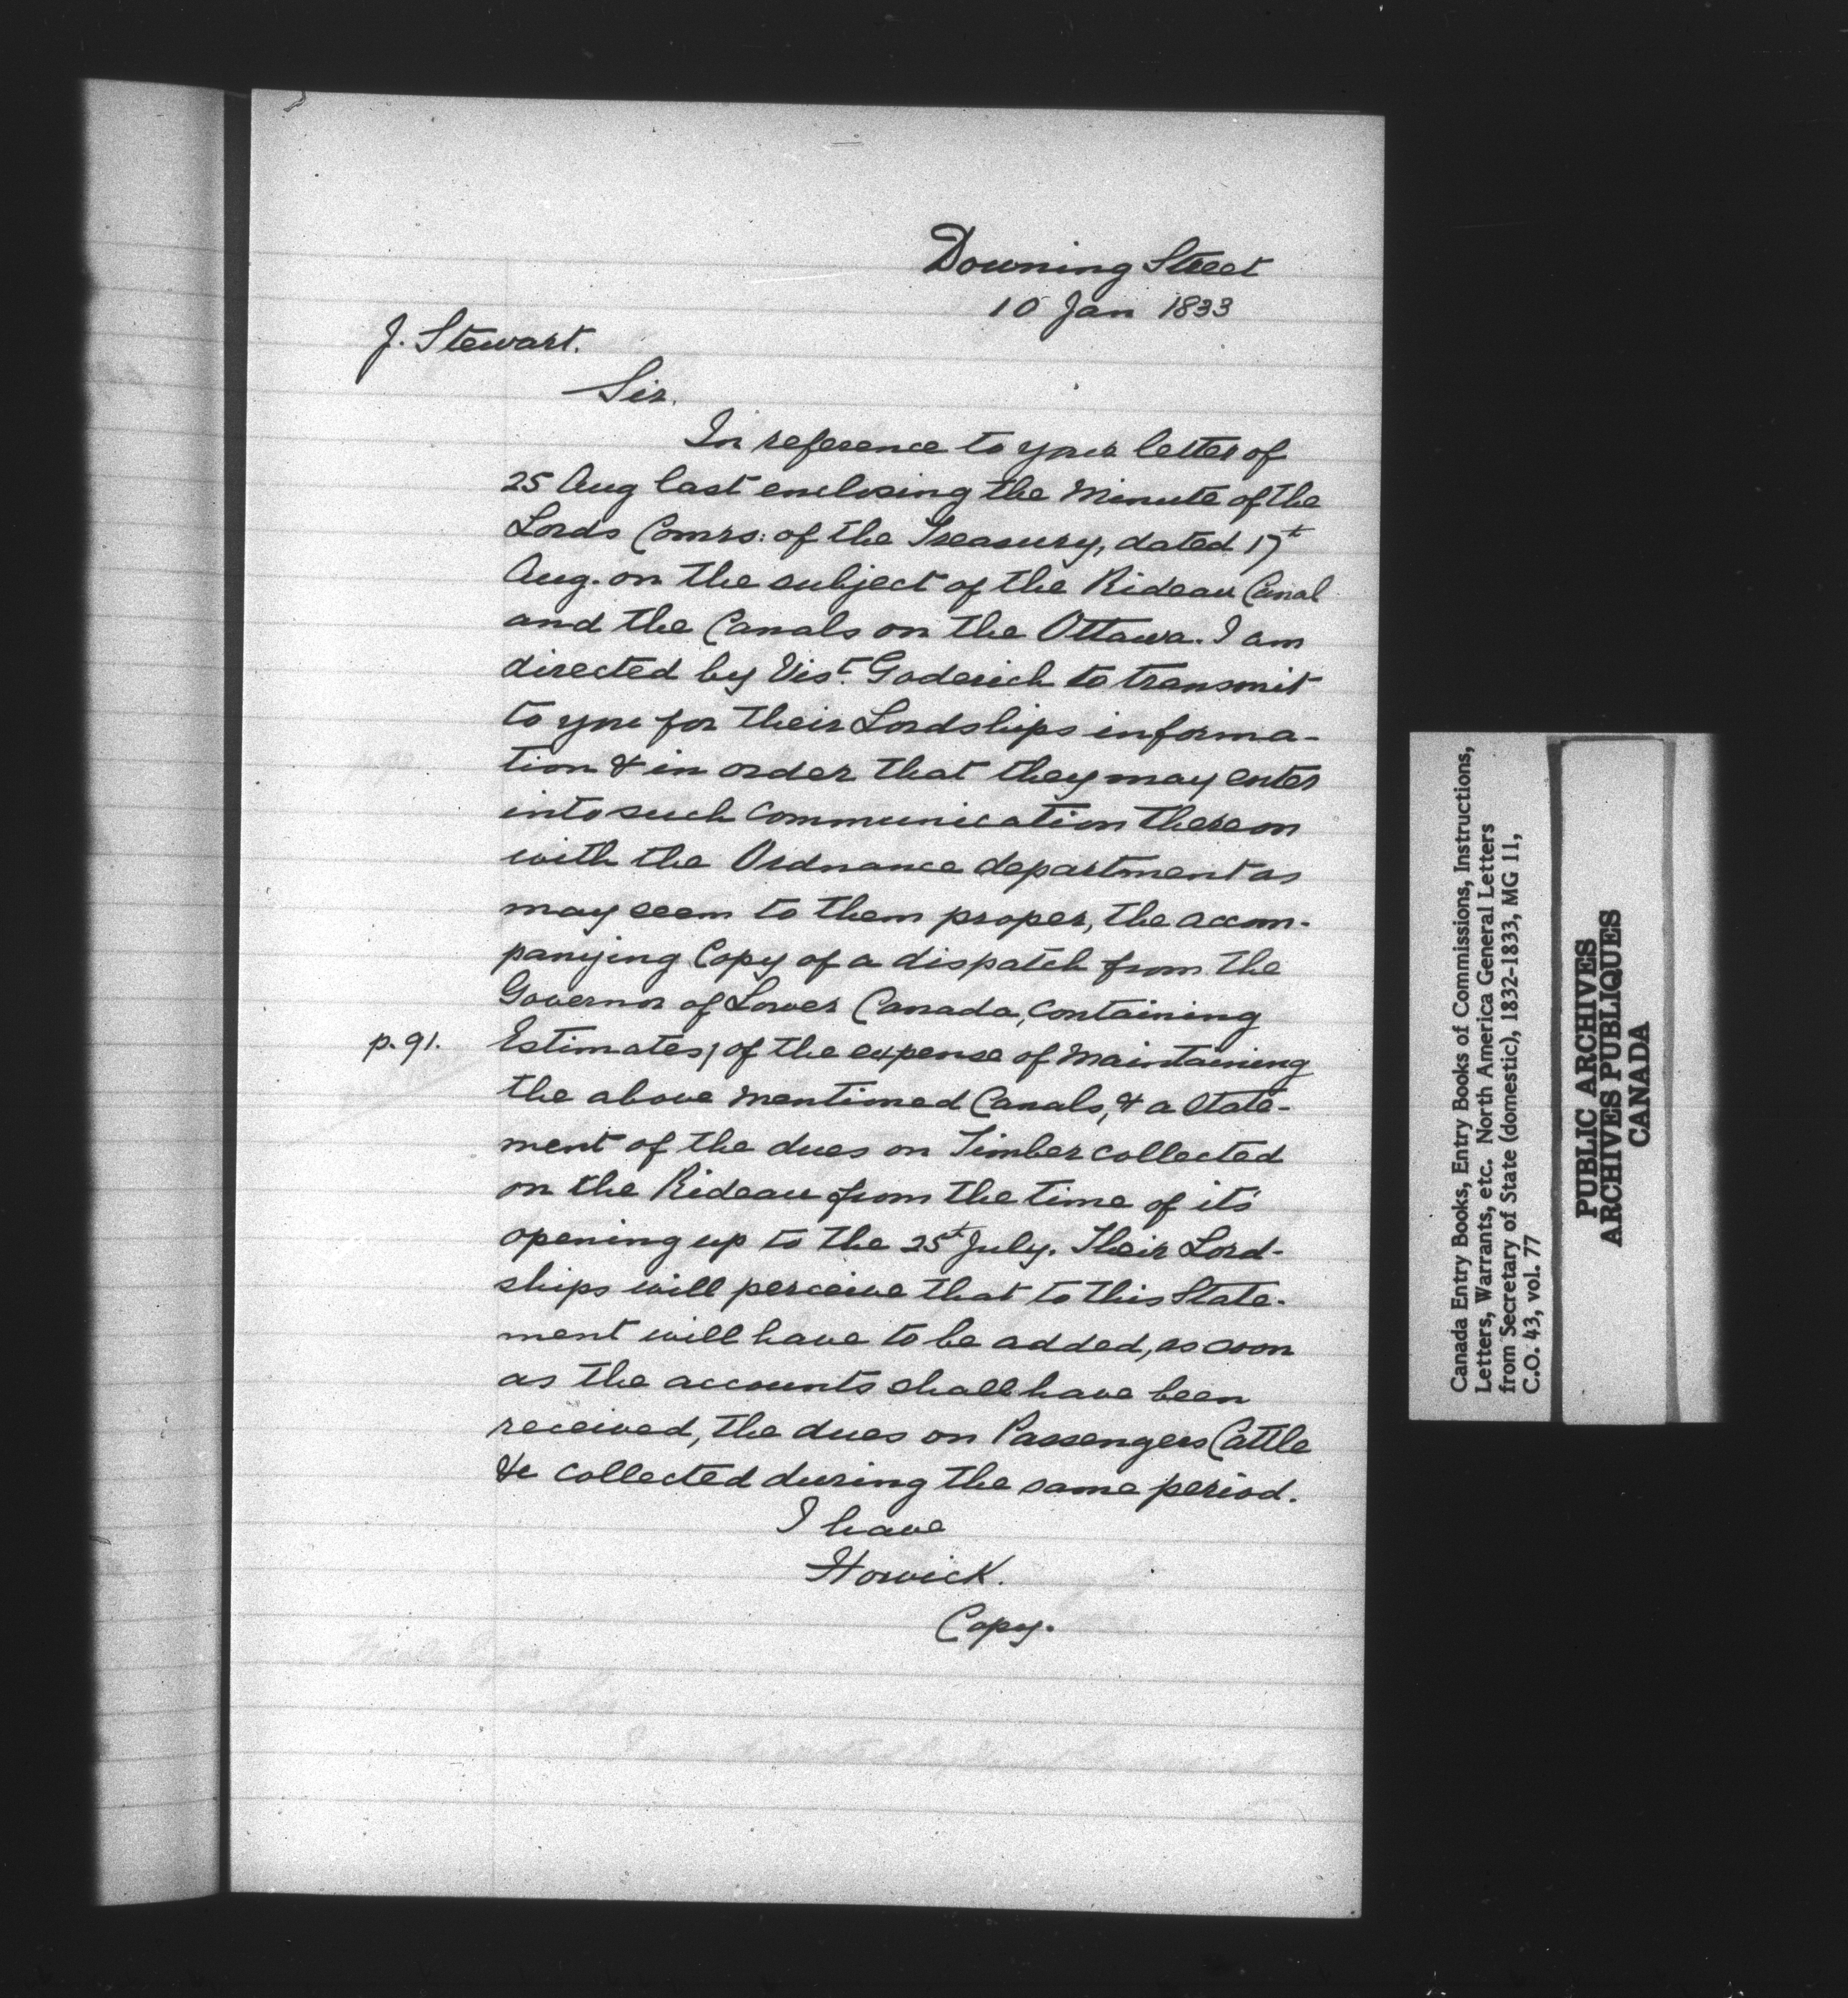 Downing Street
10 Jan 1833
J. Stewart.
Sir.
In reference to your letter of
25 Aug last enclosing the Minute of the
Lords Comrs: of the Treasury, dated 17t
Aug. on the subject of the Rideau Canal
and the Canals on the Ottawa. I am
directed by Vist. Goderich to transmit
to you for their Lordships informa-
tion & in order that they may enter
into such communication thereon
with the Ordnance department as
may seem to them proper, the accom-
panying Copy of a dispatch from the
Governor of Lower Canada, containing
p. 91. Estimates, of the expense of Maintaining
the above mentioned Canals, & a State-
ment of the dues on Timber collected
on the Rideau from the time of its
opening up to the 25t July. Their Lord-
ships will perceive that to this State-
ment will have to be added, as soon
as the accounts shall have been
received, the dues on Passengers Cattle
&c collected during the same period.
I have
Howick.
Copy.
Canada Entry Books, Entry Books of Commissions, Instructions,
Letters, Warrants, etc. North America General Letters
from Secretary of State (domestic), 1832-1833, MG 11,
C.O. 43, vol. 77
PUBLIC ARCHIVES
ARCHIVES PUBLIQUES
CANADA